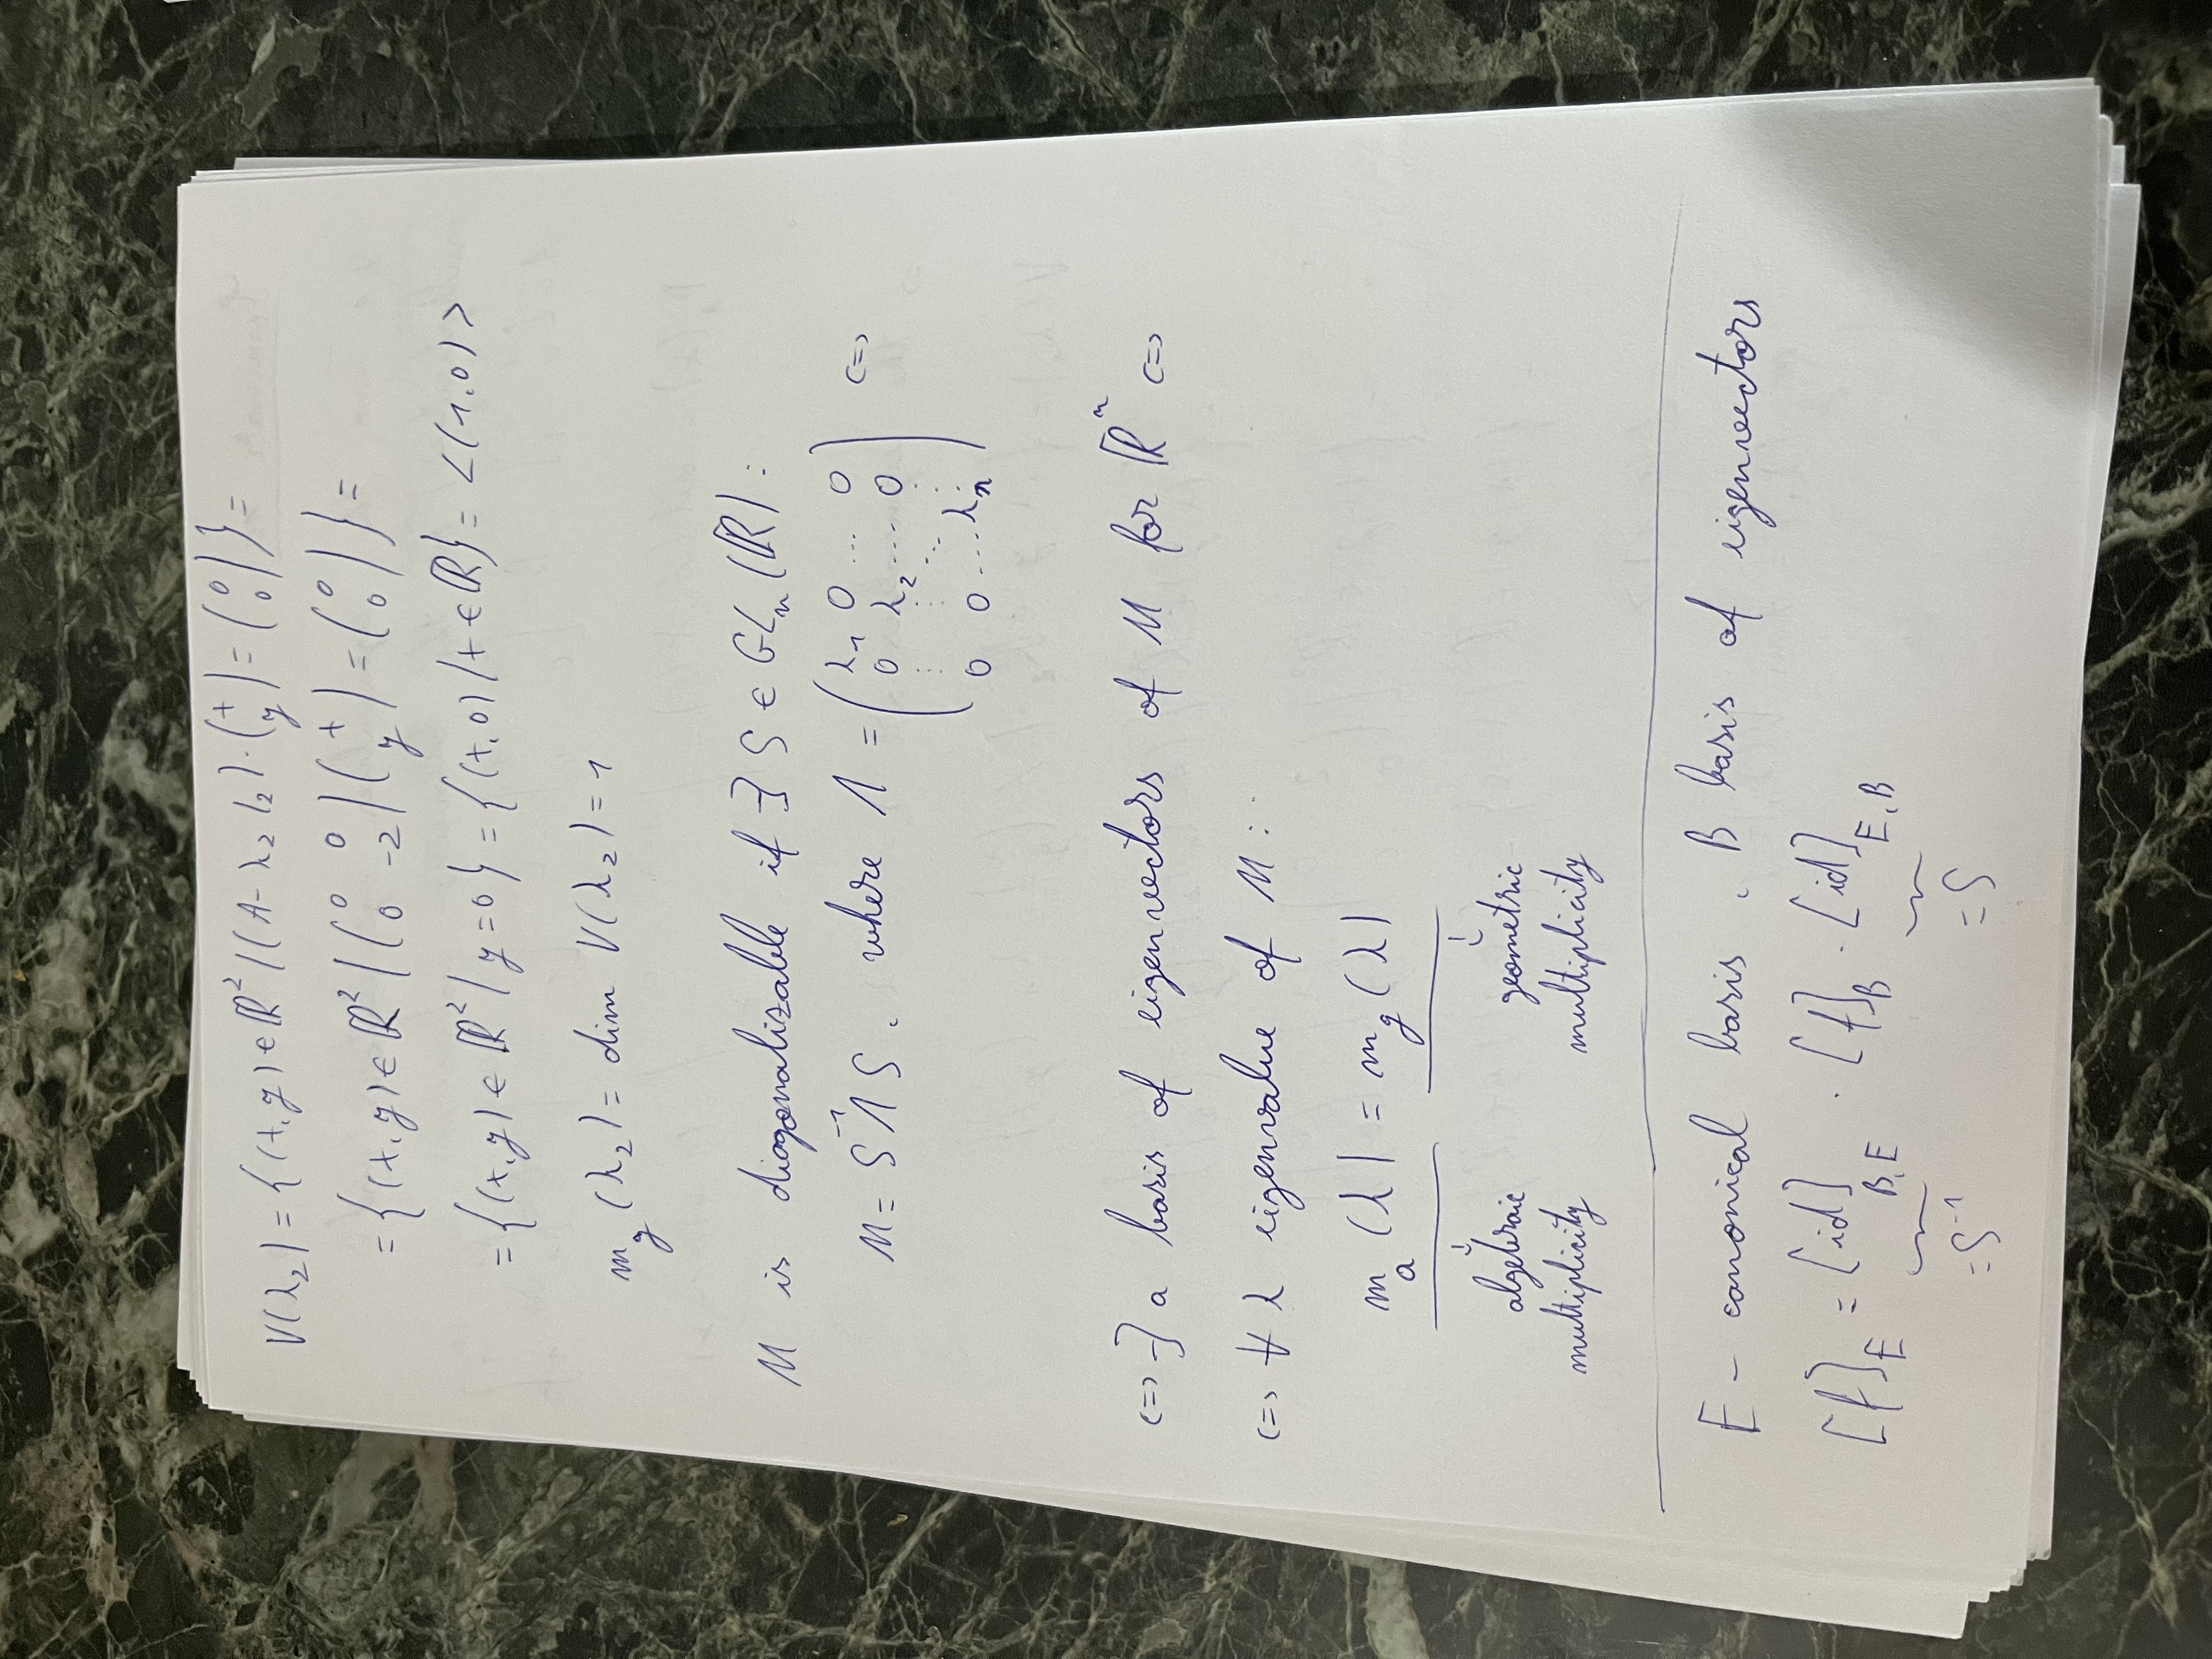 V(λ₂) = {(x,y) ∈ ℝ² | (A - λ₂ I₂) · (x y) = (0 0)} =
= {(x,y) ∈ ℝ² | (0 0 0 -2) (x y) = (0 0)} =
= {(x,y) ∈ ℝ² | y = 0} = {(x,0) | x ∈ ℝ} = <(1,0)>
m_g (λ₂) = dim V(λ₂) = 1
M is diagonalizable if ∃ S ∈ GL_n (ℝ) :
M = S⁻¹ Λ S, where Λ = (λ₁ 0 ... 0 0 λ₂ ... 0 ⋮ ⋮ ⋱ ⋮ 0 0 ... λ_n) <=>
<=> ∃ a basis of eigenvectors of M for ℝⁿ <=>
<=> ∀ λ eigenvalue of M :
m_a (λ) = m_g (λ)
↓ ↓
algebraic geometric
multiplicity multiplicity
E - canonical basis, B basis of eigenvectors
[f]_E = [id]_B,E · [f]_B · [id]_E,B
= S⁻¹ = S